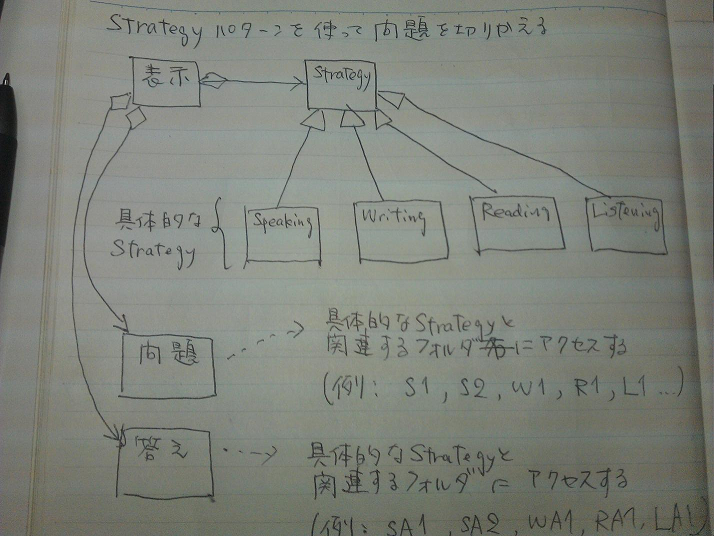 Strategy パターンを使って問題を切りかえる
表示
Strategy
具体的な
Strategy
Speaking
Writing
Reading
Listening
問題
具体的なStrategyと
関連するフォルダにアクセスする
(例: S1, S2, W1, R1, L1 ...)
答え
具体的なStrategyと
関連するフォルダに アクセスする
(例: SA1, SA2, WA1, RA1, LA1)